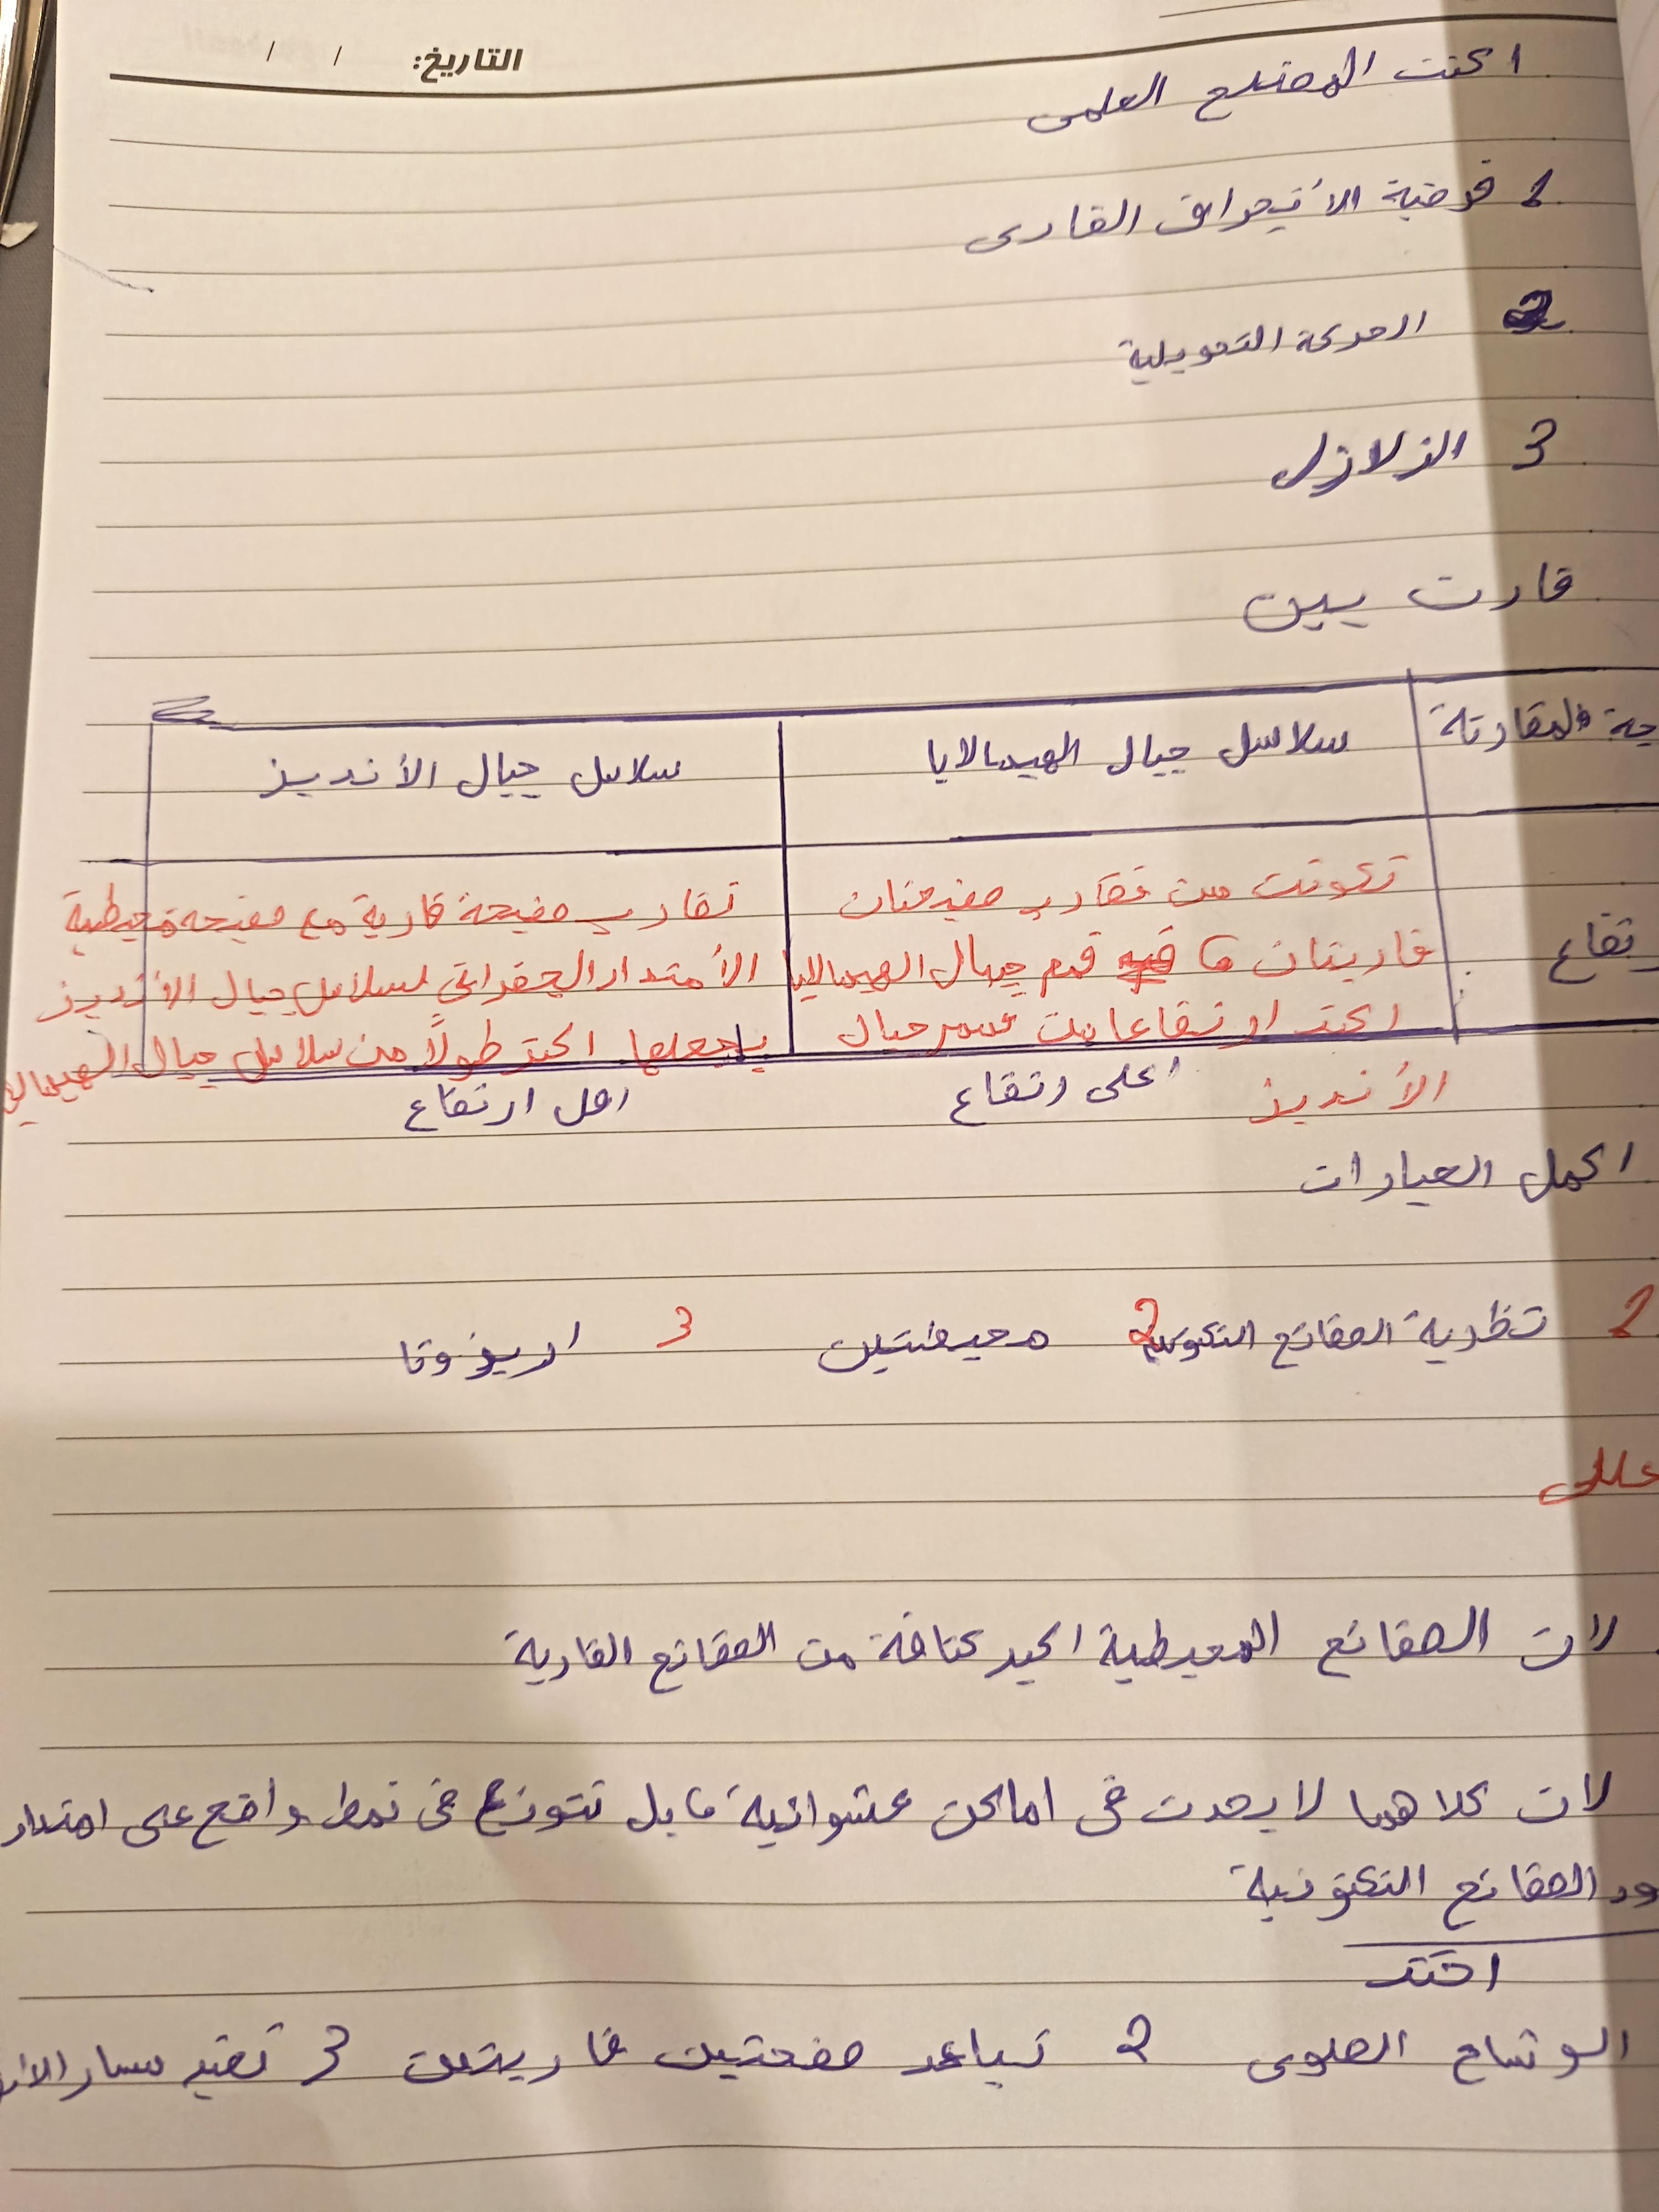 التاريخ: / /
اكتب المصطلح العلمى
1 فرضية الأنجراف القارى
2 الحركة التحويلية
3 الزلازل
قارن بين
جة المقارنة سلاسل جبال الهيمالايا سلاسل جبال الأنديز
تكونت من تقارب صفيحتان تقارب صفيحة قارية مع صفيحه محيطية
رتفاع قاريتان، قمم جبال الهيمالايا الأمتداد الجغرافي لسلاسل جبال الأنديز
اكثر ارتفاعا من قمم جبال يجعلها اكثر طولاً من سلاسل جبال الهيمالايا
الأنديز اعلى رتفاع اقل ارتفاع
اكمل العبارات
1 نظرية الصفائح التكتونية 2 محيطتين 3 اريزونا
علل
لان الصفائح المحيطية اكبر كثافة من الصفائح القارية
لان كلاهما لا يحدث فى اماكن عشوائية، بل تتوزع فى نمط واضح على امتداد
ود الصفائح التكتونية
اختر
الوشاح العلوى 2 تباعد صفحتين قاريتين 3 تغير مسار